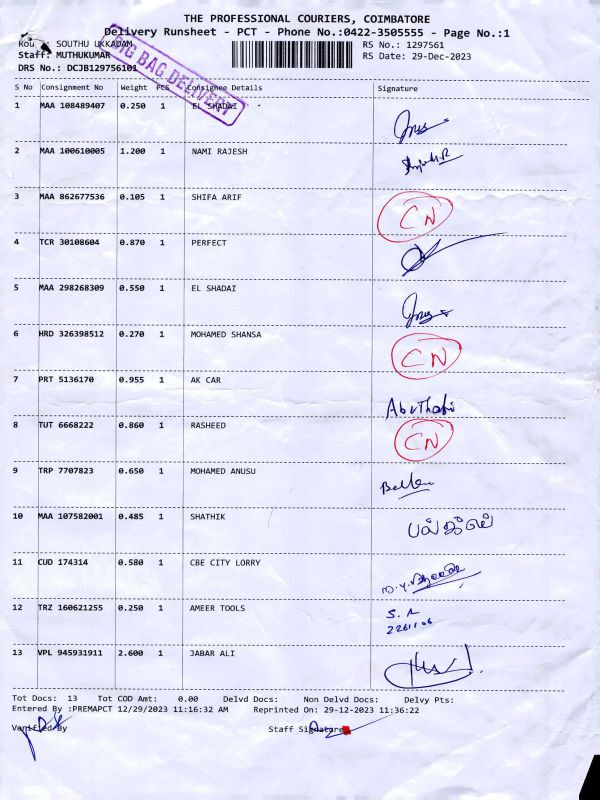 THE PROFESSIONAL COURIERS, COIMBATORE
Delivery Runsheet - PCT - Phone No.:0422-3505555 - Page No.:1
SOUTHU UKKADAM RS No.: 1297561
Staff: MUTHUKUMAR RS Date: 29-Dec-2023
DRS No.: DCJB129756101
BIG BAG DELIVERY
S No Consignment No Weight PCS Consignee Details Signature
1 MAA 108489407 0.250 1 EL SHADAI
2 MAA 100610005 1.200 1 NAMI RAJESH
3 MAA 862677536 0.105 1 SHIFA ARIF CN
4 TCR 30108604 0.870 1 PERFECT
5 MAA 298268309 0.550 1 EL SHADAI
6 HRD 326398512 0.270 1 MOHAMED SHANSA CN
7 PRT 5136170 0.955 1 AK CAR
8 TUT 6668222 0.860 1 RASHEED CN
9 TRP 7707823 0.650 1 MOHAMED ANUSU
10 MAA 107582001 0.485 1 SHATHIK
11 CUD 174314 0.580 1 CBE CITY LORRY
12 TRZ 160621255 0.250 1 AMEER TOOLS
13 VPL 945931911 2.600 1 JABAR ALI
Tot Docs: 13 Tot COD Amt: 0.00 Delvd Docs: Non Delvd Docs: Delvy Pts:
Entered By :PREMAPCT 12/29/2023 11:16:32 AM Reprinted On: 29-12-2023 11:36:22
Verified By Staff Signature